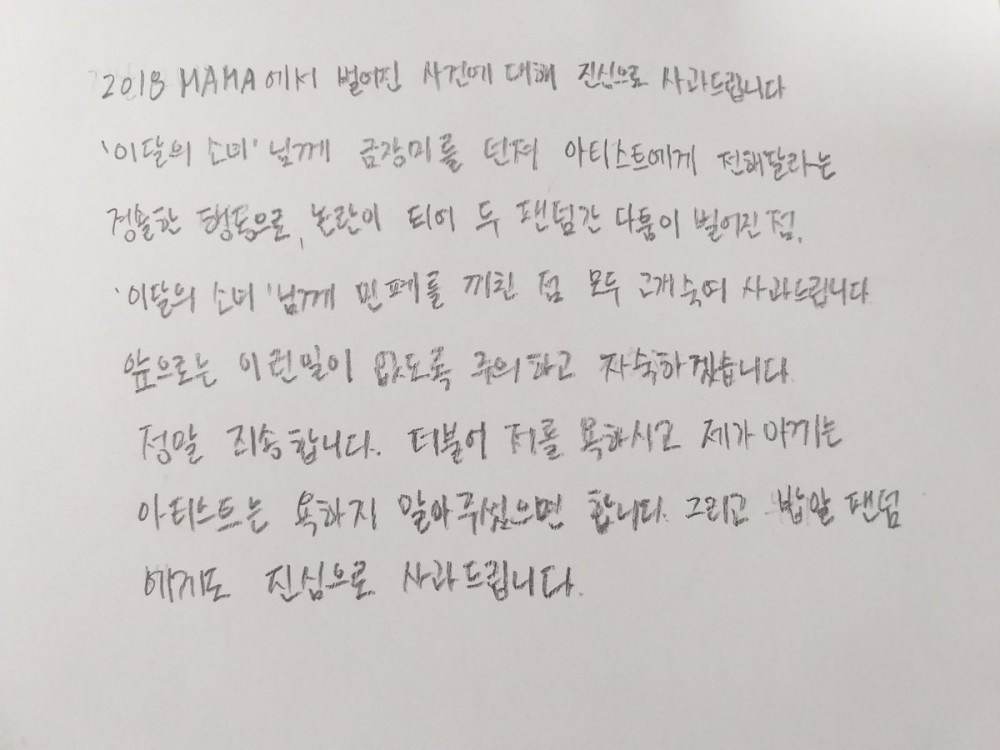 2018 MAMA에서 벌어진 사건에 대해 진심으로 사과드립니다
'이달의 소녀' 님께 금장미를 던져 아티스트에게 전해달라는
경솔한 행동으로, 논란이 되어 두 팬덤간 다툼이 벌어진 점,
'이달의 소녀' 님께 민폐를 끼친 점 모두 고개숙여 사과드립니다
앞으로는 이런일이 없도록 주의하고 자숙하겠습니다.
정말 죄송합니다. 더불어 저를 욕하시고 제가 아끼는
아티스트는 욕하지 말아주셨으면 합니다. 그리고 밥알 팬덤
에게도 진심으로 사과드립니다.